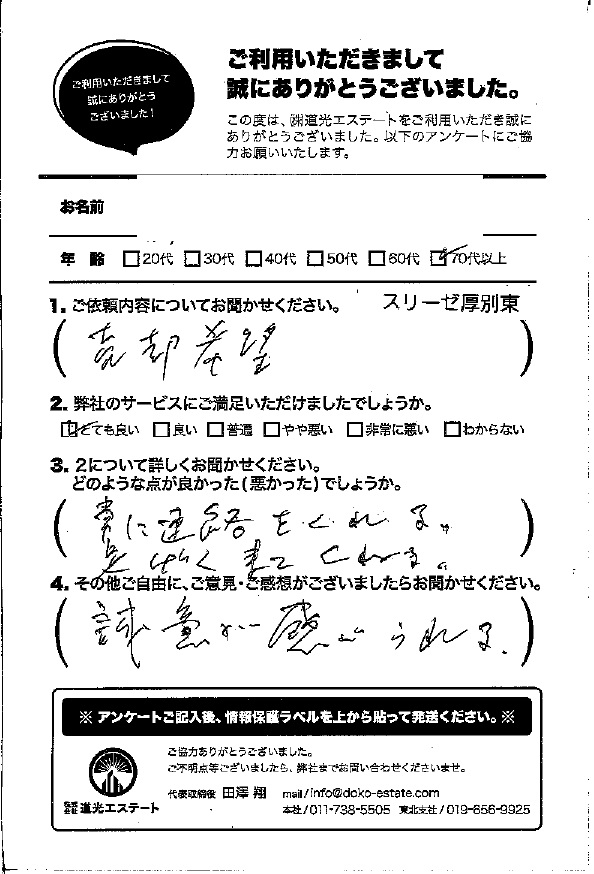 ご利用いただきまして
誠にありがとう
ございました！
ご利用いただきまして
誠にありがとうございました。
この度は、㈱道光エステートをご利用いただき誠に
ありがとうございました。以下のアンケートにご協
力お願いいたします。
お名前
年 齢 □20代 □30代 □40代 □50代 □60代 ☑70代以上
1. ご依頼内容についてお聞かせください。 スリーゼ厚別東
(売却希望)
2. 弊社のサービスにご満足いただけましたでしょうか。
☑とても良い □良い □普通 □やや悪い □非常に悪い □わからない
3. 2について詳しくお聞かせください。
どのような点が良かった(悪かった)でしょうか。
(常に連絡をくれる。
足 く来てくれる。)
4. その他ご自由に、ご意見・ご感想がございましたらお聞かせください。
(誠意が感じられる.)
※ アンケートご記入後、情報保護ラベルを上から貼って発送ください。※
ご協力ありがとうございました。
ご不明点等ございましたら、弊社までお問い合わせくださいませ。
株式会社 道光エステート
代表取締役 田澤 翔 mail/info@doko-estate.com
本社/011-738-5505 東北支社/019-656-9925